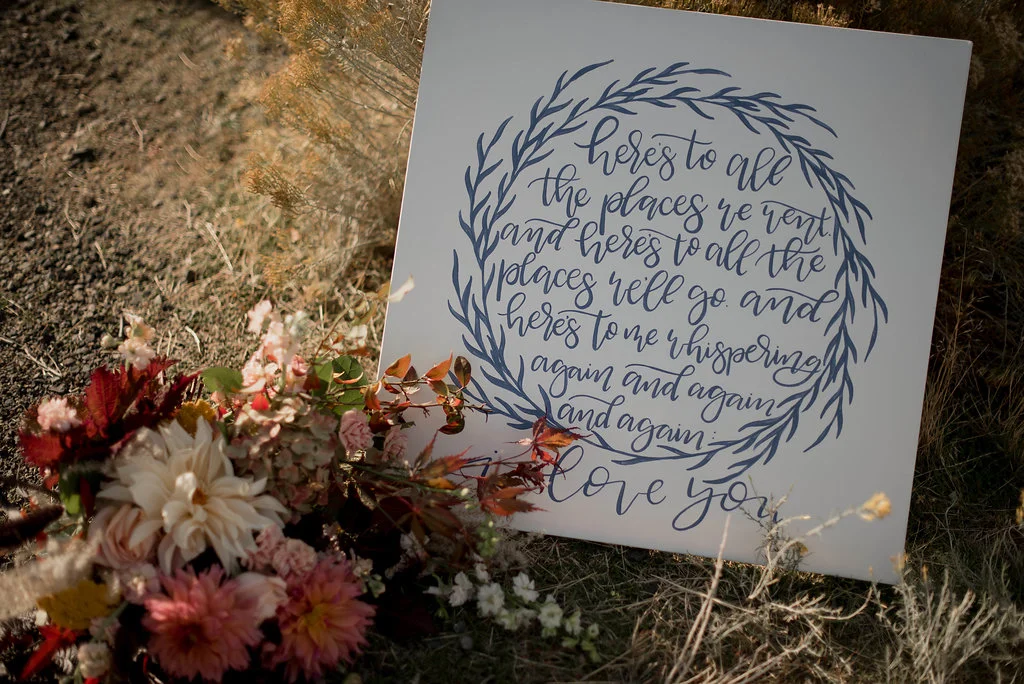 here's to all
the places we went.
and here's to all the
places we'll go. and
here's to me whispering
again and again
and again:
i love you